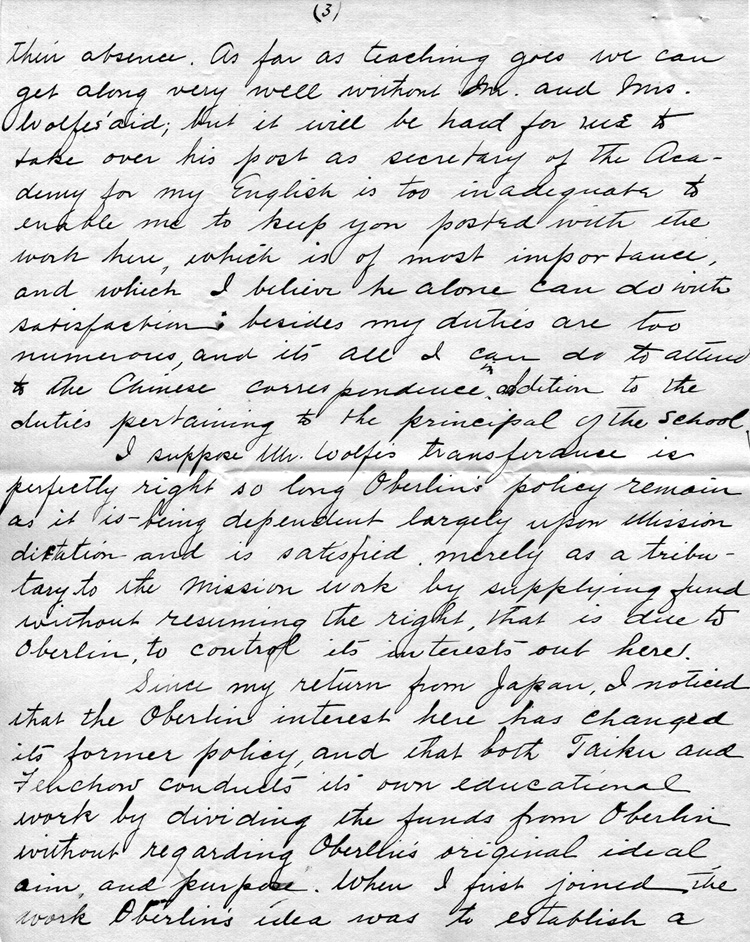 (3)
their absence. As far as teaching goes we can
get along very well without Mr. and Mrs.
Wolfes' aid; but it will be hard for me to
take over his post as secretary of the Aca-
demy for my English is too inadequate to
enable me to keep you posted with the
work here, which is of most importance,
and which I believe he alone can do with
satisfaction; besides my duties are too
numerous, and its all I can do to attend
to the Chinese correspondence in addition to the
duties pertaining to the principal of the School.
I suppose Mr. Wolfe's transferance is
perfectly right so long Oberlin's policy remain
as it is - being dependent largely upon Mission
dictation and is satisfied merely as a tribu-
tary to the Mission work by supplying fund
without resuming the right, that is due to
Oberlin, to control its interests out here.
Since my return from Japan, I noticed
that the Oberlin interest here has changed
its former policy, and that both Taiku and
Fenchow conducts its own educational
work by dividing the funds from Oberlin
without regarding Oberlin's original ideal
aim, and purpose. When I first joined the
work Oberlin's idea was to establish a